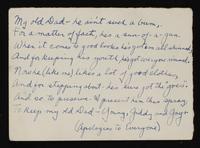 My old Dad - he ain't such a bum,
For a matter of fact, he's a son-of-a-gun.
When it comes to good looks he's got 'em all skinned,
And for keeping his youth, he's got everyone
Now he (like me) likes a lot of good clothes,
And for stepping about - he's sure got the "goes".
And so to preserve - I present him this spray
To keep my old Dad - Young, Giddy and Gay.
(Apologies to Everyone)